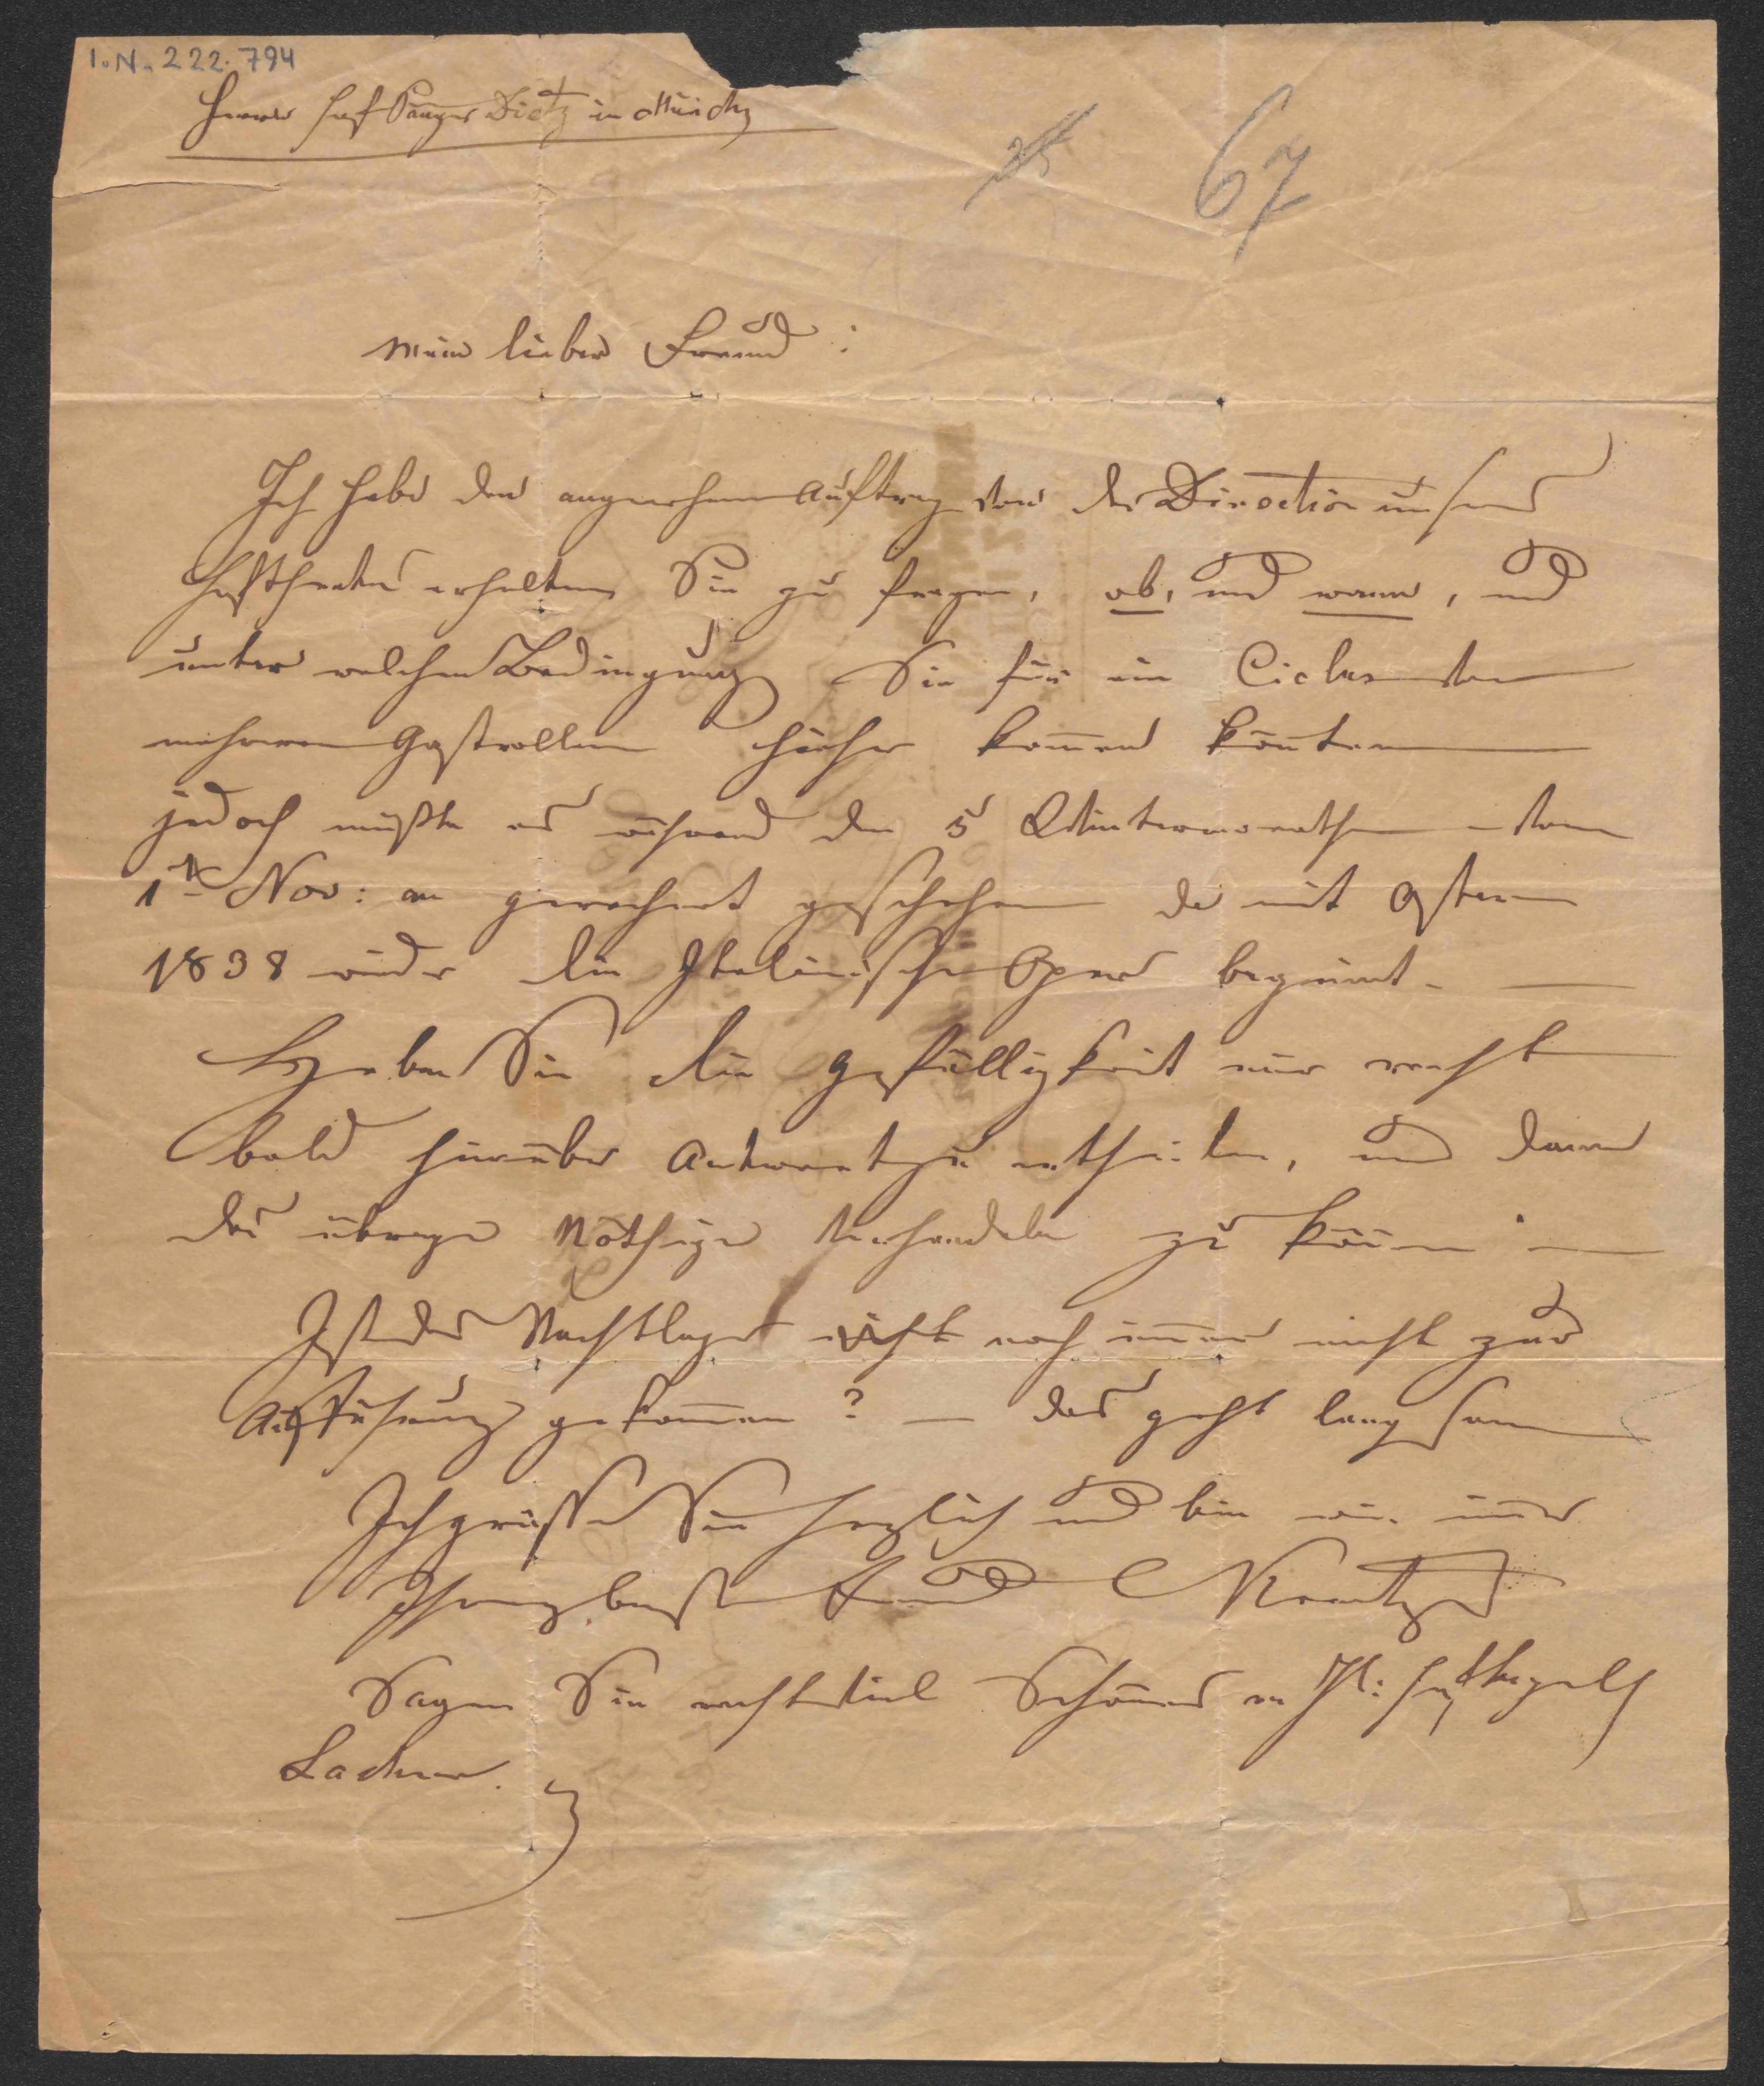 I.N. 222.794
Herrn Hof Sänger Dietz in Münch
25
67
Mein lieber Freund :
Ich habe den angenehmen Auftrag von der Direction unsers
Hoftheaters erhalten Sie zu fragen, ob, und wann, und
unter welchen Bedingung Sie für ein Ciclus von
mehreren Gastrollen hieher kom̄en kön̄ten
jedoch müßte es während den 5 Wintermonathen – vom
1t Nov: an gerechnet geschehen da mit Ostern
1838 wieder die Italienische Oper begin̄t. —
Haben Sie die Gefälligkeit mir recht
bald hierüber Antwort zu ertheilen, und dann
das übrige Nöthige verhandeln zu kön̄en —
Ist das Nachtlager noch im̄er nicht zur
Aufführung gekom̄en ? — das geht langsam
Ich grüsse Sie herzlich und bin wie im̄er
Ihr bester Freund CKreutzer
Sagen Sie recht viel Schönes an H: Hof
Lachner.